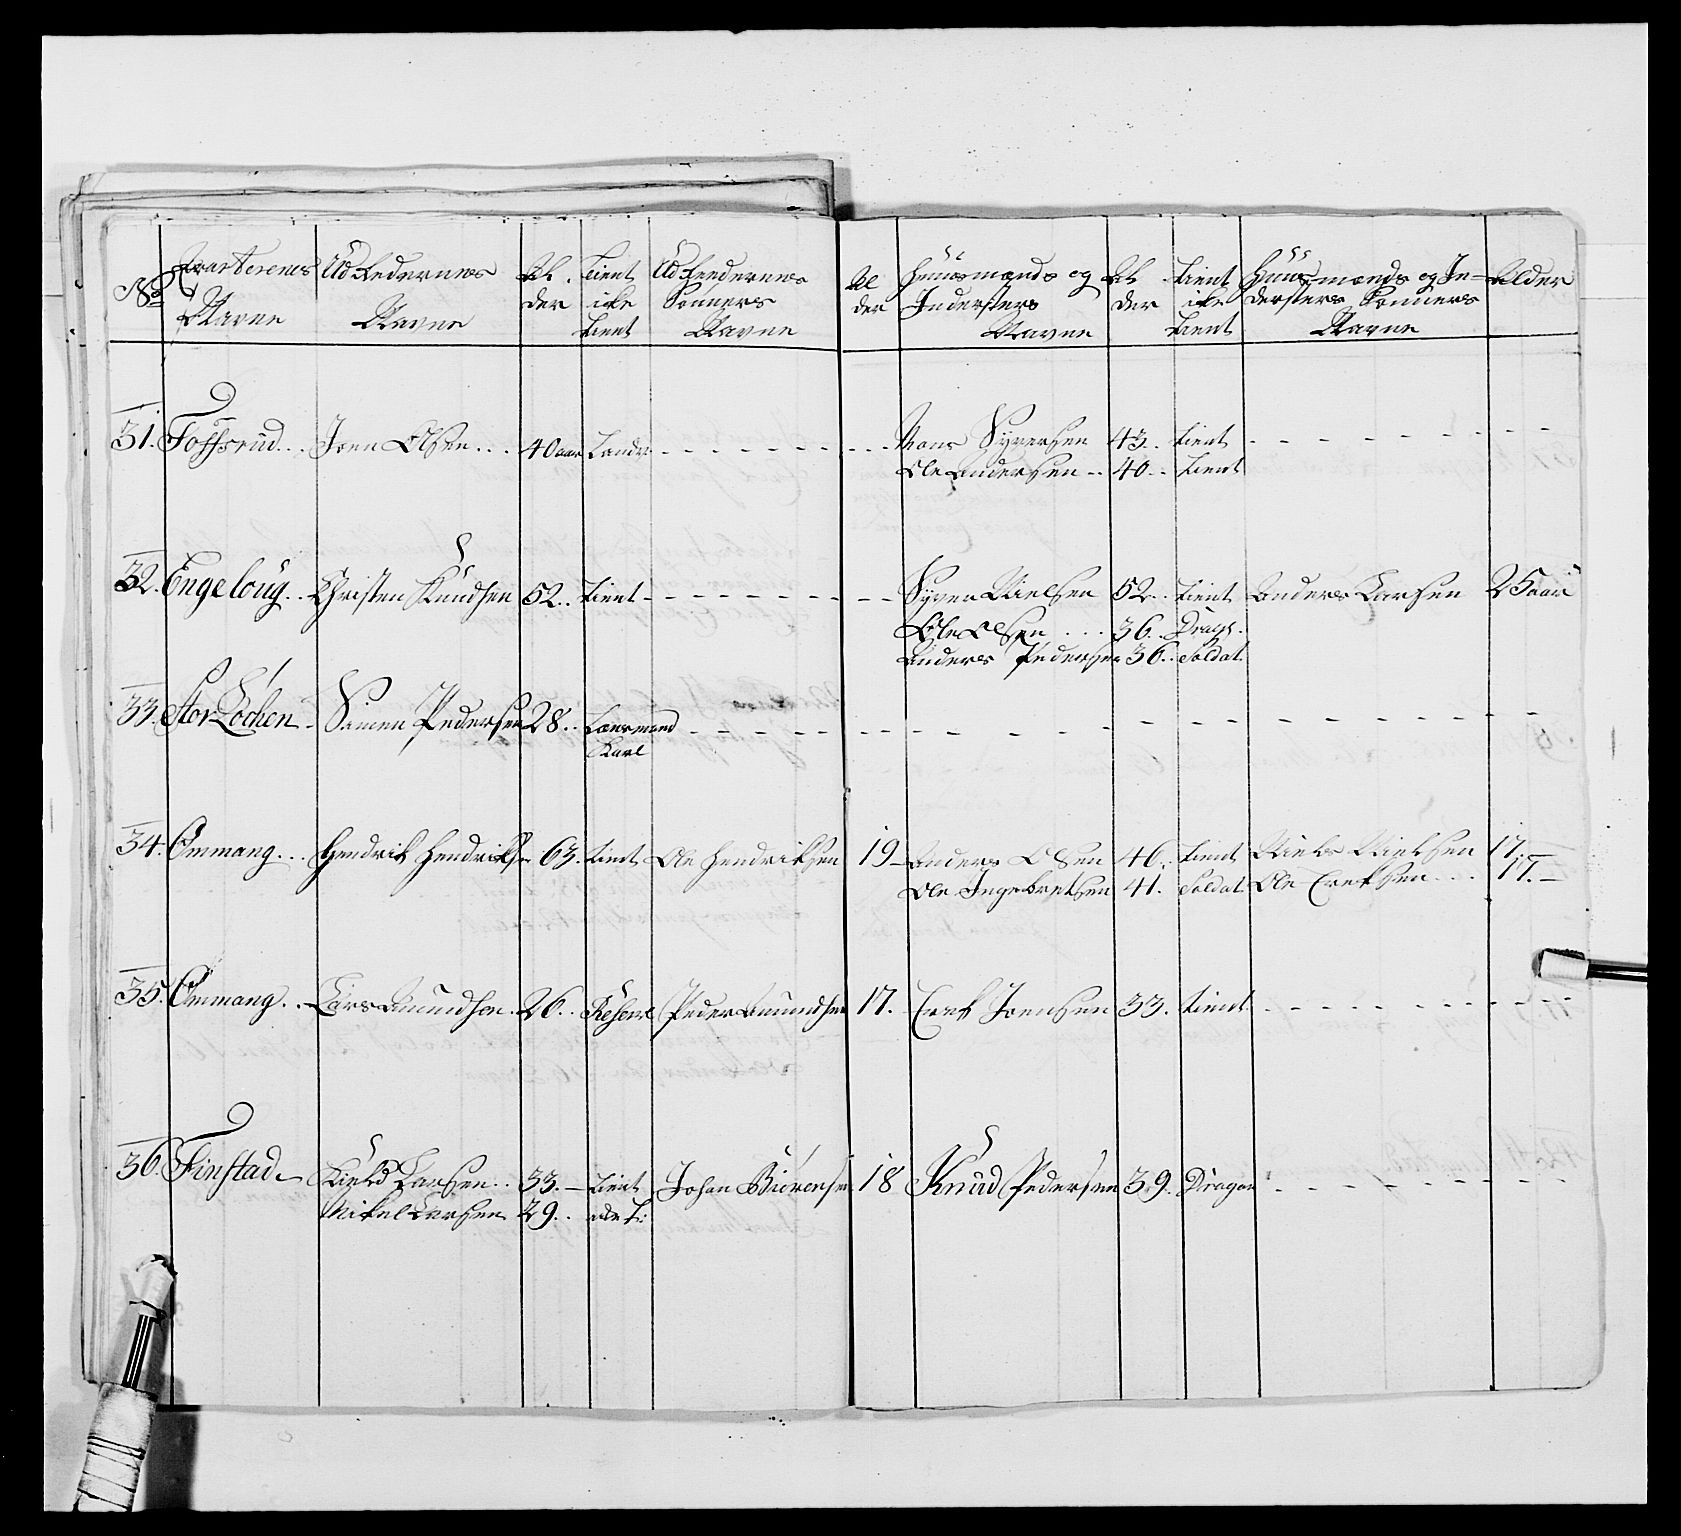 No Qvarterenes Navne | Udredernes Navne | Alder | tient icke tient | Udreedernes Sønners Navne | Al der | Huusmænds og Indersters Navne | Al der | tient icke tient | Huusmænds og Indersters Sønners Navne | Alder
31. Fossrud... Joen Olsen... 40 aar Landv - - - Hans Syversen 43.. tient - - -
Ole Andersen .. 40.. tient
32. Engeloug.. Christen Knudsen 52.. tient - - - Syver Nielsen 52.. tient Anders Larsen 25 aar
Ole Olsen ... 36.. Drag:
Anders Pedersen 36.. Soldat
33. Stor Løchen - Simen Pedersen 28.. Lænsmand - - -
Karl
34. Ommang... Hendrik Hendriks: 63. tient Ole Hendriksen 19 - Anders Olsen 46.. tient Niels Nielsen 17.
Ole Ingebretsen 41. Soldat Ole Ereksen ... 17. -
35. Ommang.. Lars Amundsen. 26.. Reserv Peder Amundsen 17. Erek Joensen 33. tient - - -
36. Finstad - Kield Larsen.. 33. - tient Johan Biørensen 18 Knud Pedersen 39. Dragon - - -
Mikel Larsen 29..